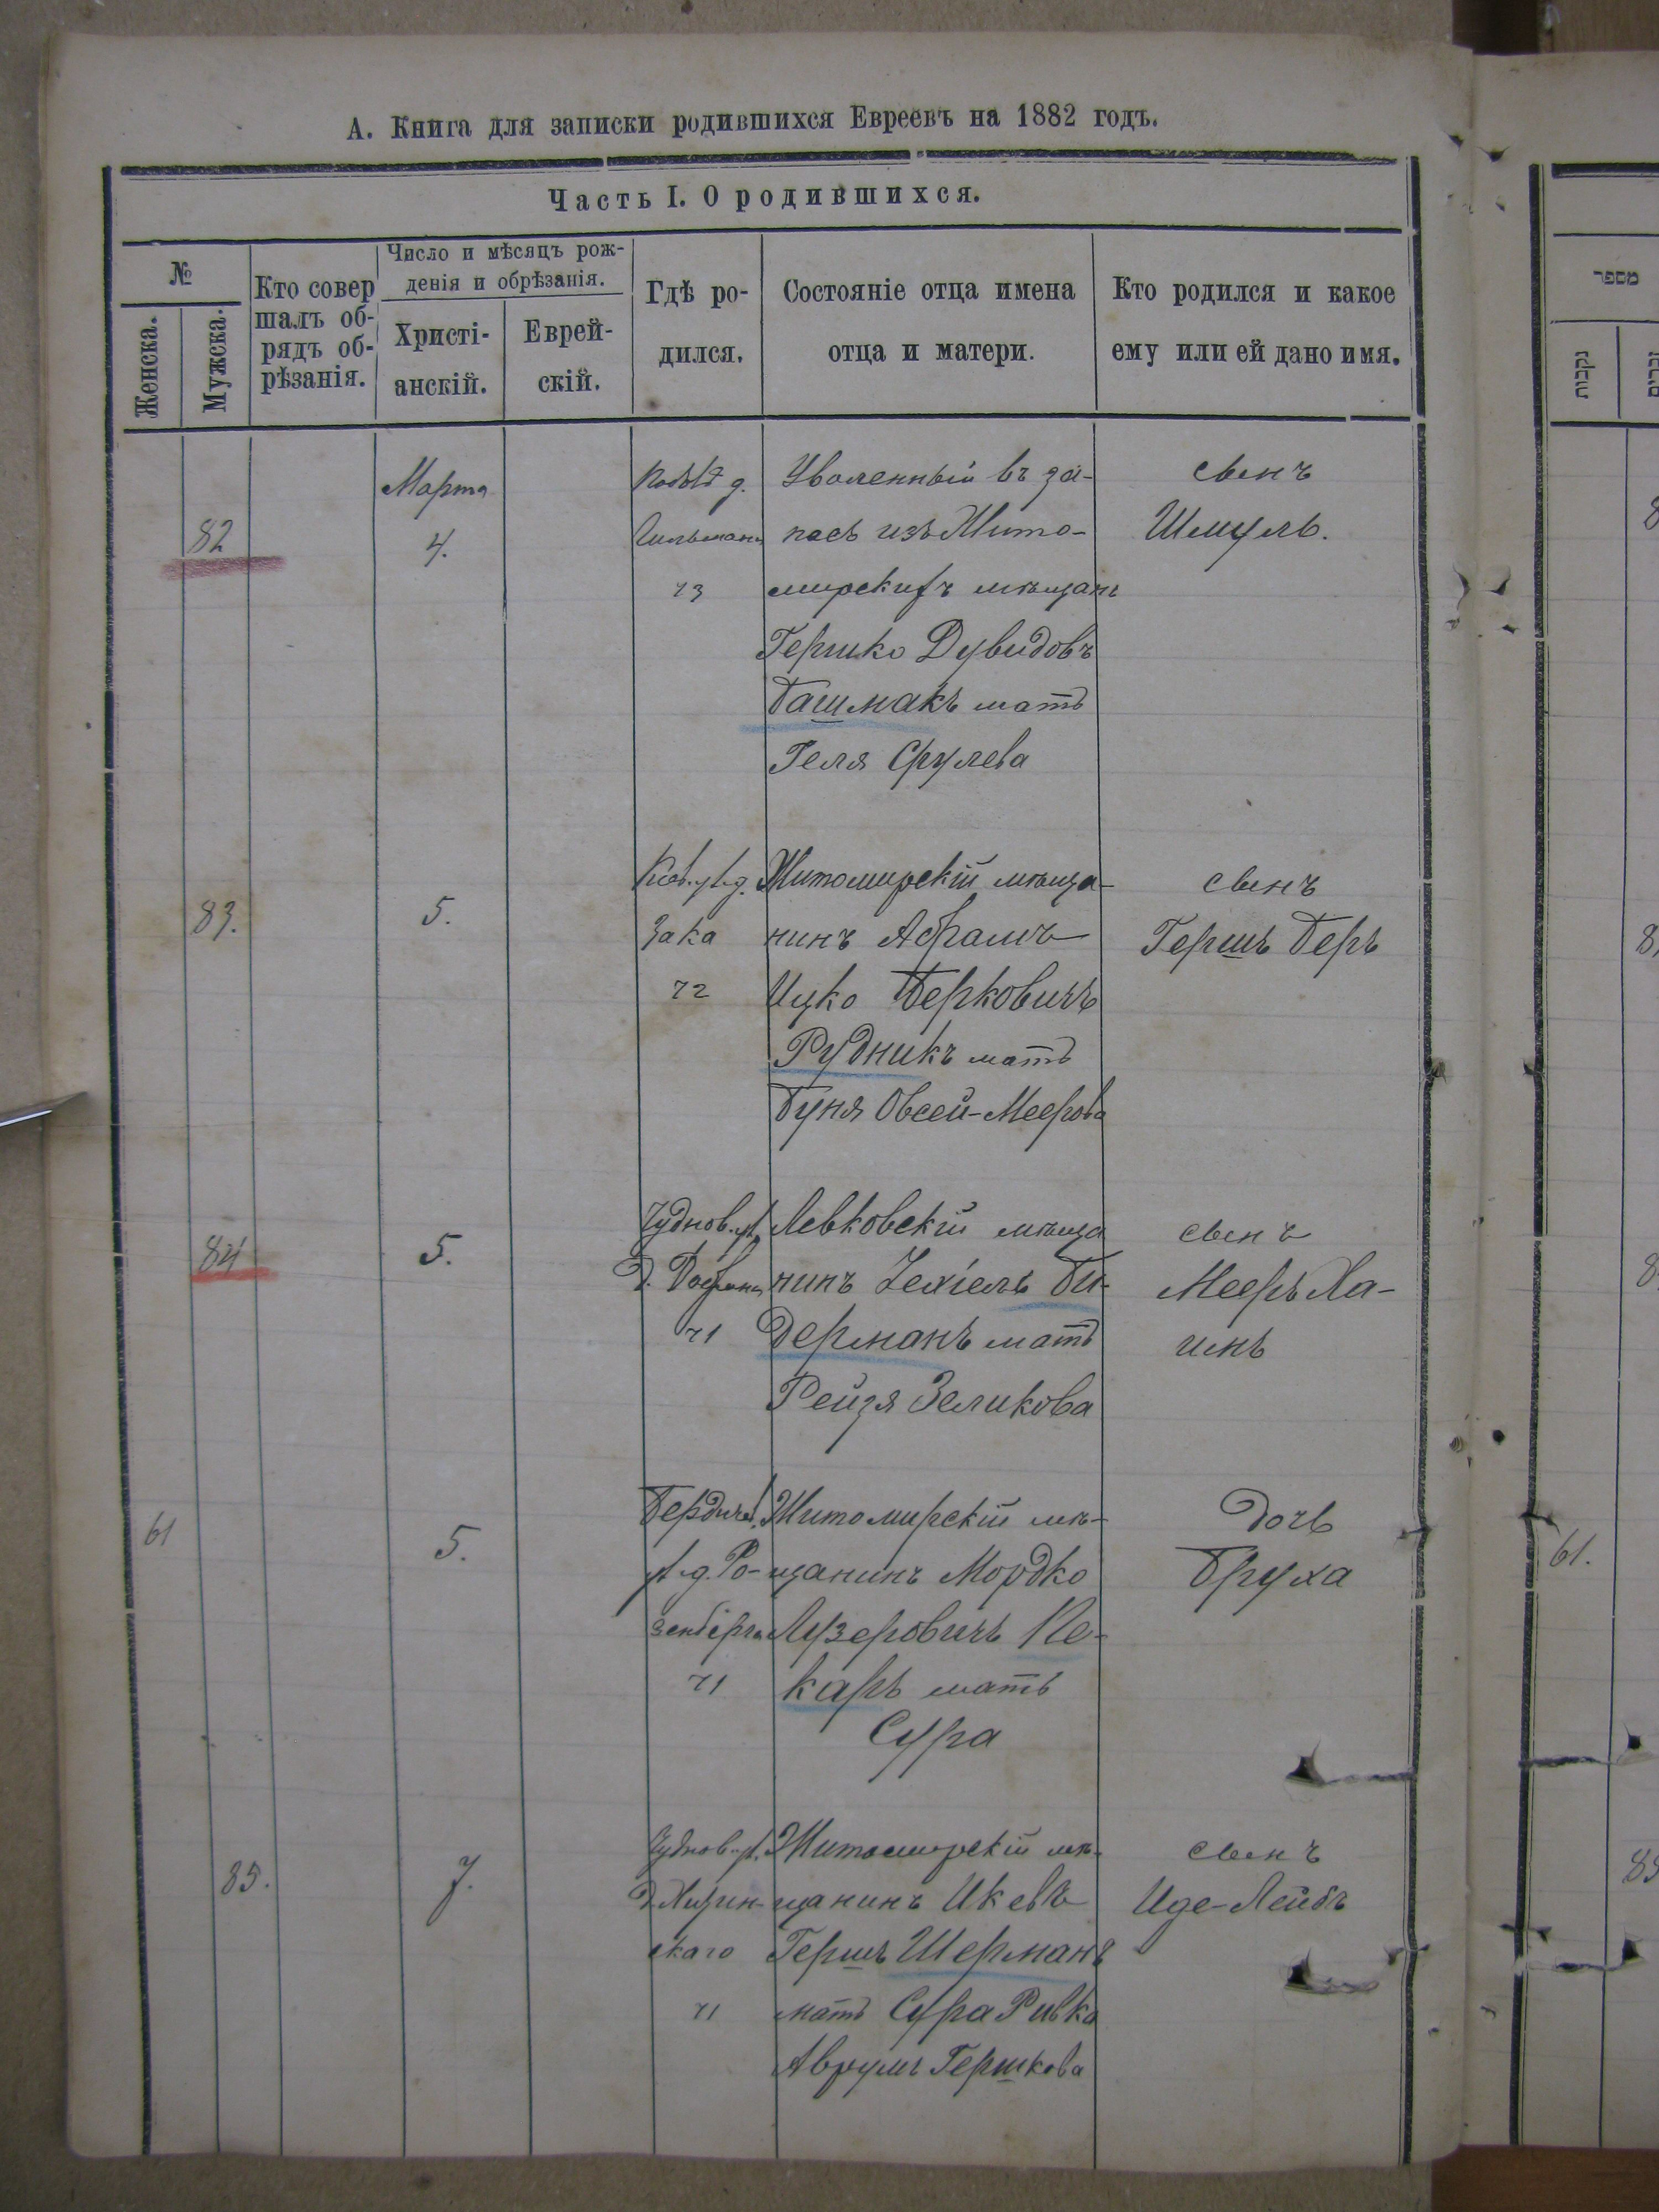 А. Книга для записки родившихся Евреевъ на 1882 годъ.
Часть I. О родившихся.
№
Женска.
Мужска.
Кто совер
шалъ об-
рядъ об-
рѣзанія.
Число и мѣсяцъ рож-
денія и обрѣзанія.
Христі-
анскій.
Еврей-
скій.
Гдѣ ро-
дился.
Состояніе отца имена
отца и матери.
Кто родился и какое
ему или ей дано имя.
מספר
נקבות
82
Марта
4.
73
Уволенный въ за-
пасъ изъ Жито-
мирскихъ мѣщанъ
Гершко Дувидовъ
Башмакъ мать
Геля Срулева
сынъ
Шмуль.
83.
5.
Зака
72
Житомирскій мѣща-
нинъ Абрамъ
Ицко Берковичъ
Рудникъ мать
Буня Овсей-Меерова
сынъ
Гершъ Беръ
84
5.
Чуднов. ул.
71
Левковскій мѣща
нинъ Іехіель Би-
дерманъ мать
Рейзя Зеликова
сынъ
Мееръ Ха-
имъ
61
5.
Бердичев.
ул. д. Ро-
зенберга
71
Житомирскій мѣ-
щанинъ Мордко
Лузеровичъ Пе-
каръ мать
Сура
дочь
Бруха
61.
85.
7.
Чуднов. ул.
скаго
71
Житомирскій мѣ-
щанинъ Икевъ
Гершъ Шерманъ
мать Сура Ривка
Аврумъ Гершкова
сынъ
Иде-Лейбъ